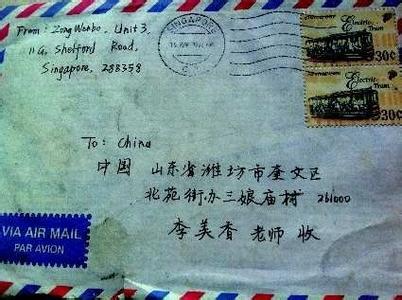 From: Zong Wenbo, Unit 3,
11G, Shelford Road,
Singapore, 288358
SINGAPORE
Electric
Tram
30¢
Electric
Tram
30¢
To: China
中国 山东省潍坊市奎文区
北苑街办三娘庙村 261000
李美香 老师 收
VIA AIR MAIL
PAR AVION